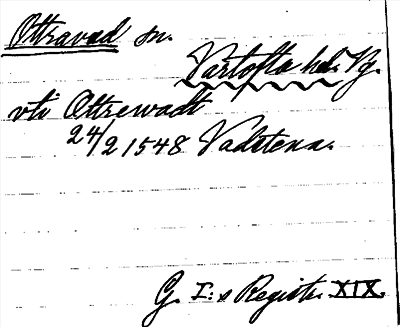 Ottravad sn.
Vartofta hd. Vg.
vti Ottrewadt
24/2 1548 Vadstena.
G. I:s Registr. XIX.